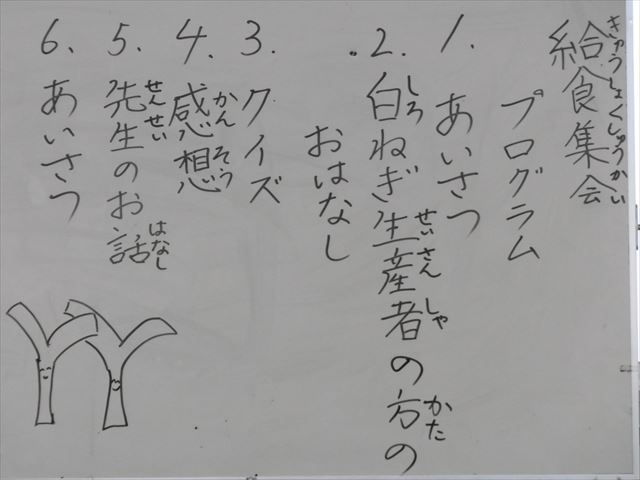 給食集会
きゅうしょくしゅうかい
プログラム
1. あいさつ
2. 白ねぎ生産者の方の
しろ せいさんしゃ かた
おはなし
3. クイズ
4. 感想
かんそう
5. 先生のお話
せんせい はなし
6. あいさつ